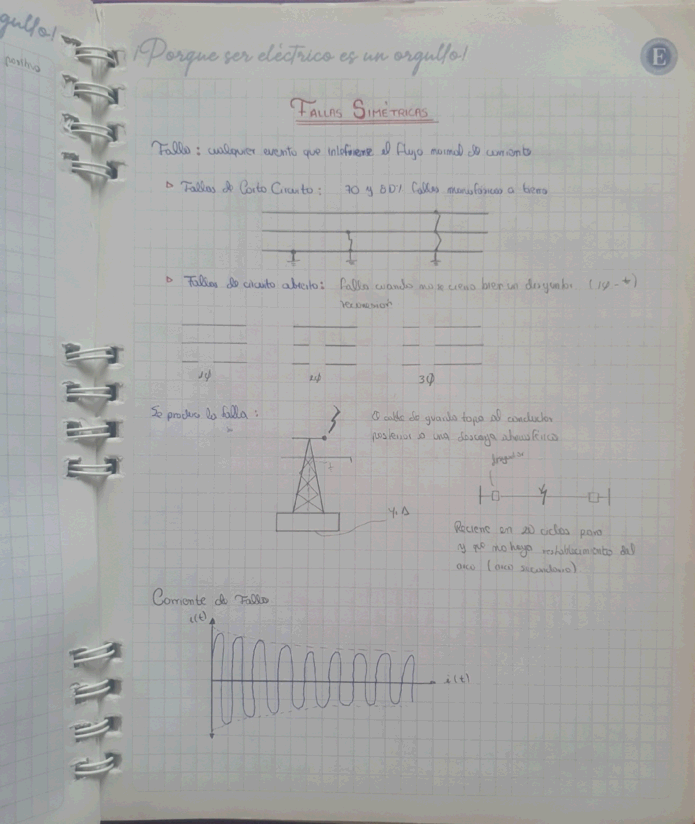 gullo!
positiva
¡Porque ser eléctrico es un orgullo!
E
FALLAS SIMÉTRICAS
Falla: cualquier evento que interfiere el flujo normal de corriente
▷ Fallas de Corto Circuito: 70 y 80% fallas monofásicas a tierra
▷ Fallas de circuito abierto: Fallas cuando no se cierra bien un disyuntor (1φ - t)
reconexión
1φ 2φ 3φ
Se produce la falla:
El cable de guarda tapa al conductor
posterior a una descarga atmosférica
Y, Δ
Recierre en 20 ciclos para
y no haya restablecimiento del
arco (arco secundario)
Corriente de Falla
i(t)
i(t)